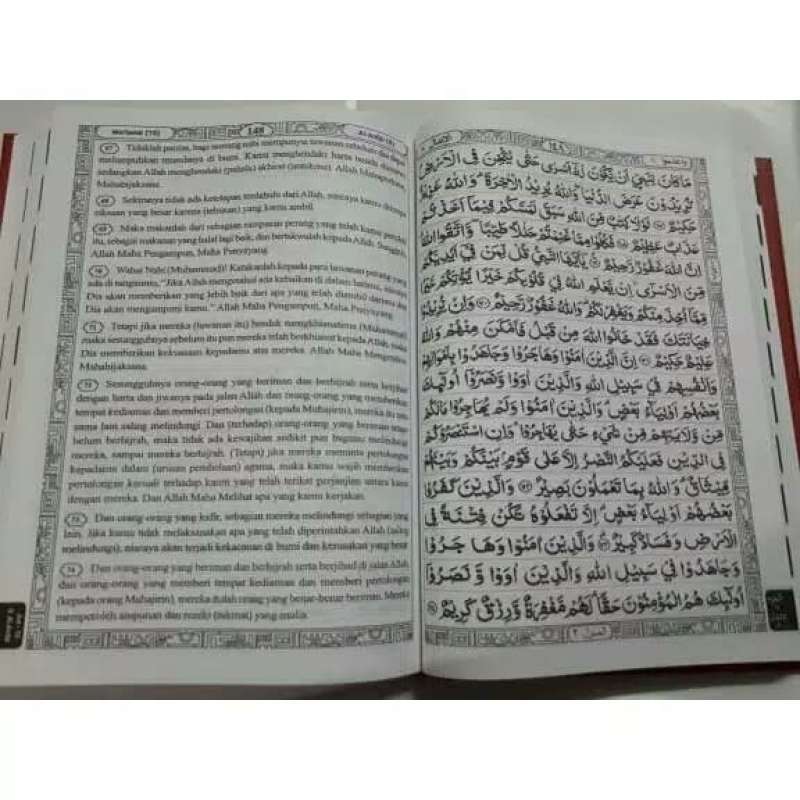 148
67 Tidaklah pantas, bagi seorang nabi mempunyai tawanan sebelum dia dapat
melumpuhkan musuhnya di bumi. Kamu menghendaki harta benda duniawi
sedangkan Allah menghendaki (pahala) akhirat (untukmu). Allah Mahaperkasa,
Mahabijaksana.
68 Sekiranya tidak ada ketetapan terdahulu dari Allah, niscaya kamu ditimpa
siksaan yang besar karena (tebusan) yang kamu ambil.
69 Maka makanlah dari sebagian rampasan perang yang telah kamu peroleh
itu, sebagai makanan yang halal lagi baik, dan bertakwalah kepada Allah. Sungguh,
Allah Maha Pengampun, Maha Penyayang.
70 Wahai Nabi (Muhammad)! Katakanlah kepada para tawanan perang yang
ada di tanganmu, "Jika Allah mengetahui ada kebaikan di dalam hatimu, niscaya
Dia akan memberikan yang lebih baik dari apa yang telah diambil darimu dan
Dia akan mengampuni kamu." Allah Maha Pengampun, Maha Penyayang.
71 Tetapi jika mereka (tawanan itu) hendak mengkhianatimu (Muhammad)
maka sesungguhnya sebelum itu pun mereka telah berkhianat kepada Allah, maka
Dia memberikan kekuasaan kepadamu atas mereka. Allah Maha Mengetahui,
Mahabijaksana.
72 Sesungguhnya orang-orang yang beriman dan berhijrah serta berjihad
dengan harta dan jiwanya pada jalan Allah dan orang-orang yang memberikan
tempat kediaman dan memberi pertolongan (kepada Muhajirin), mereka itu satu
sama lain saling melindungi. Dan (terhadap) orang-orang yang beriman tetapi
belum berhijrah, maka tidak ada kewajiban sedikit pun bagimu melindungi
mereka, sampai mereka berhijrah. (Tetapi) jika mereka meminta pertolongan
kepadamu dalam (urusan pembelaan) agama, maka kamu wajib memberikan
pertolongan kecuali terhadap kaum yang telah terikat perjanjian antara kamu
dengan mereka. Dan Allah Maha Melihat apa yang kamu kerjakan.
73 Dan orang-orang yang kafir, sebagian mereka melindungi sebagian yang
lain. Jika kamu tidak melaksanakan apa yang telah diperintahkan Allah (saling
melindungi), niscaya akan terjadi kekacauan di bumi dan kerusakan yang besar.
74 Dan orang-orang yang beriman dan berhijrah serta berjihad di jalan Allah
dan orang-orang yang memberi tempat kediaman dan memberi pertolongan
(kepada orang Muhajirin), mereka itulah orang yang benar-benar beriman. Mereka
memperoleh ampunan dan rezeki (nikmat) yang mulia.
١٤٨
مَا كَانَ لِنَبِيٍّ اَنْ يَّكُوْنَ لَهٗٓ اَسْرٰى حَتّٰى يُثْخِنَ فِى الْاَرْضِ
تُرِيْدُوْنَ عَرَضَ الدُّنْيَا وَاللّٰهُ يُرِيْدُ الْاٰخِرَةَ وَاللّٰهُ عَزِيْزٌ
حَكِيْمٌ ۝٦٧ لَوْلَا كِتٰبٌ مِّنَ اللّٰهِ سَبَقَ لَمَسَّكُمْ فِيْمَآ اَخَذْتُمْ
عَذَابٌ عَظِيْمٌ ۝٦٨ فَكُلُوْا مِمَّا غَنِمْتُمْ حَلٰلًا طَيِّبًا وَّاتَّقُوا اللّٰهَ
اِنَّ اللّٰهَ غَفُوْرٌ رَّحِيْمٌ ۝٦٩ يٰٓاَيُّهَا النَّبِيُّ قُلْ لِّمَنْ فِيْٓ اَيْدِيْكُمْ
مِّنَ الْاَسْرٰٓى اِنْ يَّعْلَمِ اللّٰهُ فِيْ قُلُوْبِكُمْ خَيْرًا يُّؤْتِكُمْ خَيْرًا
مِّمَّآ اُخِذَ مِنْكُمْ وَيَغْفِرْ لَكُمْ وَاللّٰهُ غَفُوْرٌ رَّحِيْمٌ ۝٧٠ وَاِنْ يُّرِيْدُوْا
خِيَانَتَكَ فَقَدْ خَانُوا اللّٰهَ مِنْ قَبْلُ فَاَمْكَنَ مِنْهُمْ وَاللّٰهُ
عَلِيْمٌ حَكِيْمٌ ۝٧١ اِنَّ الَّذِيْنَ اٰمَنُوْا وَهَاجَرُوْا وَجَاهَدُوْا بِاَمْوَالِهِمْ
وَاَنْفُسِهِمْ فِيْ سَبِيْلِ اللّٰهِ وَالَّذِيْنَ اٰوَوْا وَّنَصَرُوْٓا اُولٰٓئِكَ
بَعْضُهُمْ اَوْلِيَآءُ بَعْضٍ وَالَّذِيْنَ اٰمَنُوْا وَلَمْ يُهَاجِرُوْا مَا لَكُمْ
مِّنْ وَّلَايَتِهِمْ مِّنْ شَيْءٍ حَتّٰى يُهَاجِرُوْا وَاِنِ اسْتَنْصَرُوْكُمْ
فِى الدِّيْنِ فَعَلَيْكُمُ النَّصْرُ اِلَّا عَلٰى قَوْمٍ بَيْنَكُمْ وَبَيْنَهُمْ
مِّيْثَاقٌ وَاللّٰهُ بِمَا تَعْمَلُوْنَ بَصِيْرٌ ۝٧٢ وَالَّذِيْنَ كَفَرُوْا
بَعْضُهُمْ اَوْلِيَآءُ بَعْضٍ اِلَّا تَفْعَلُوْهُ تَكُنْ فِتْنَةٌ فِى
الْاَرْضِ وَفَسَادٌ كَبِيْرٌ ۝٧٣ وَالَّذِيْنَ اٰمَنُوْا وَهَاجَرُوْا
وَجَاهَدُوْا فِيْ سَبِيْلِ اللّٰهِ وَالَّذِيْنَ اٰوَوْا وَّنَصَرُوْٓا
اُولٰٓئِكَ هُمُ الْمُؤْمِنُوْنَ حَقًّا لَهُمْ مَّغْفِرَةٌ وَّرِزْقٌ كَرِيْمٌ ۝٧٤